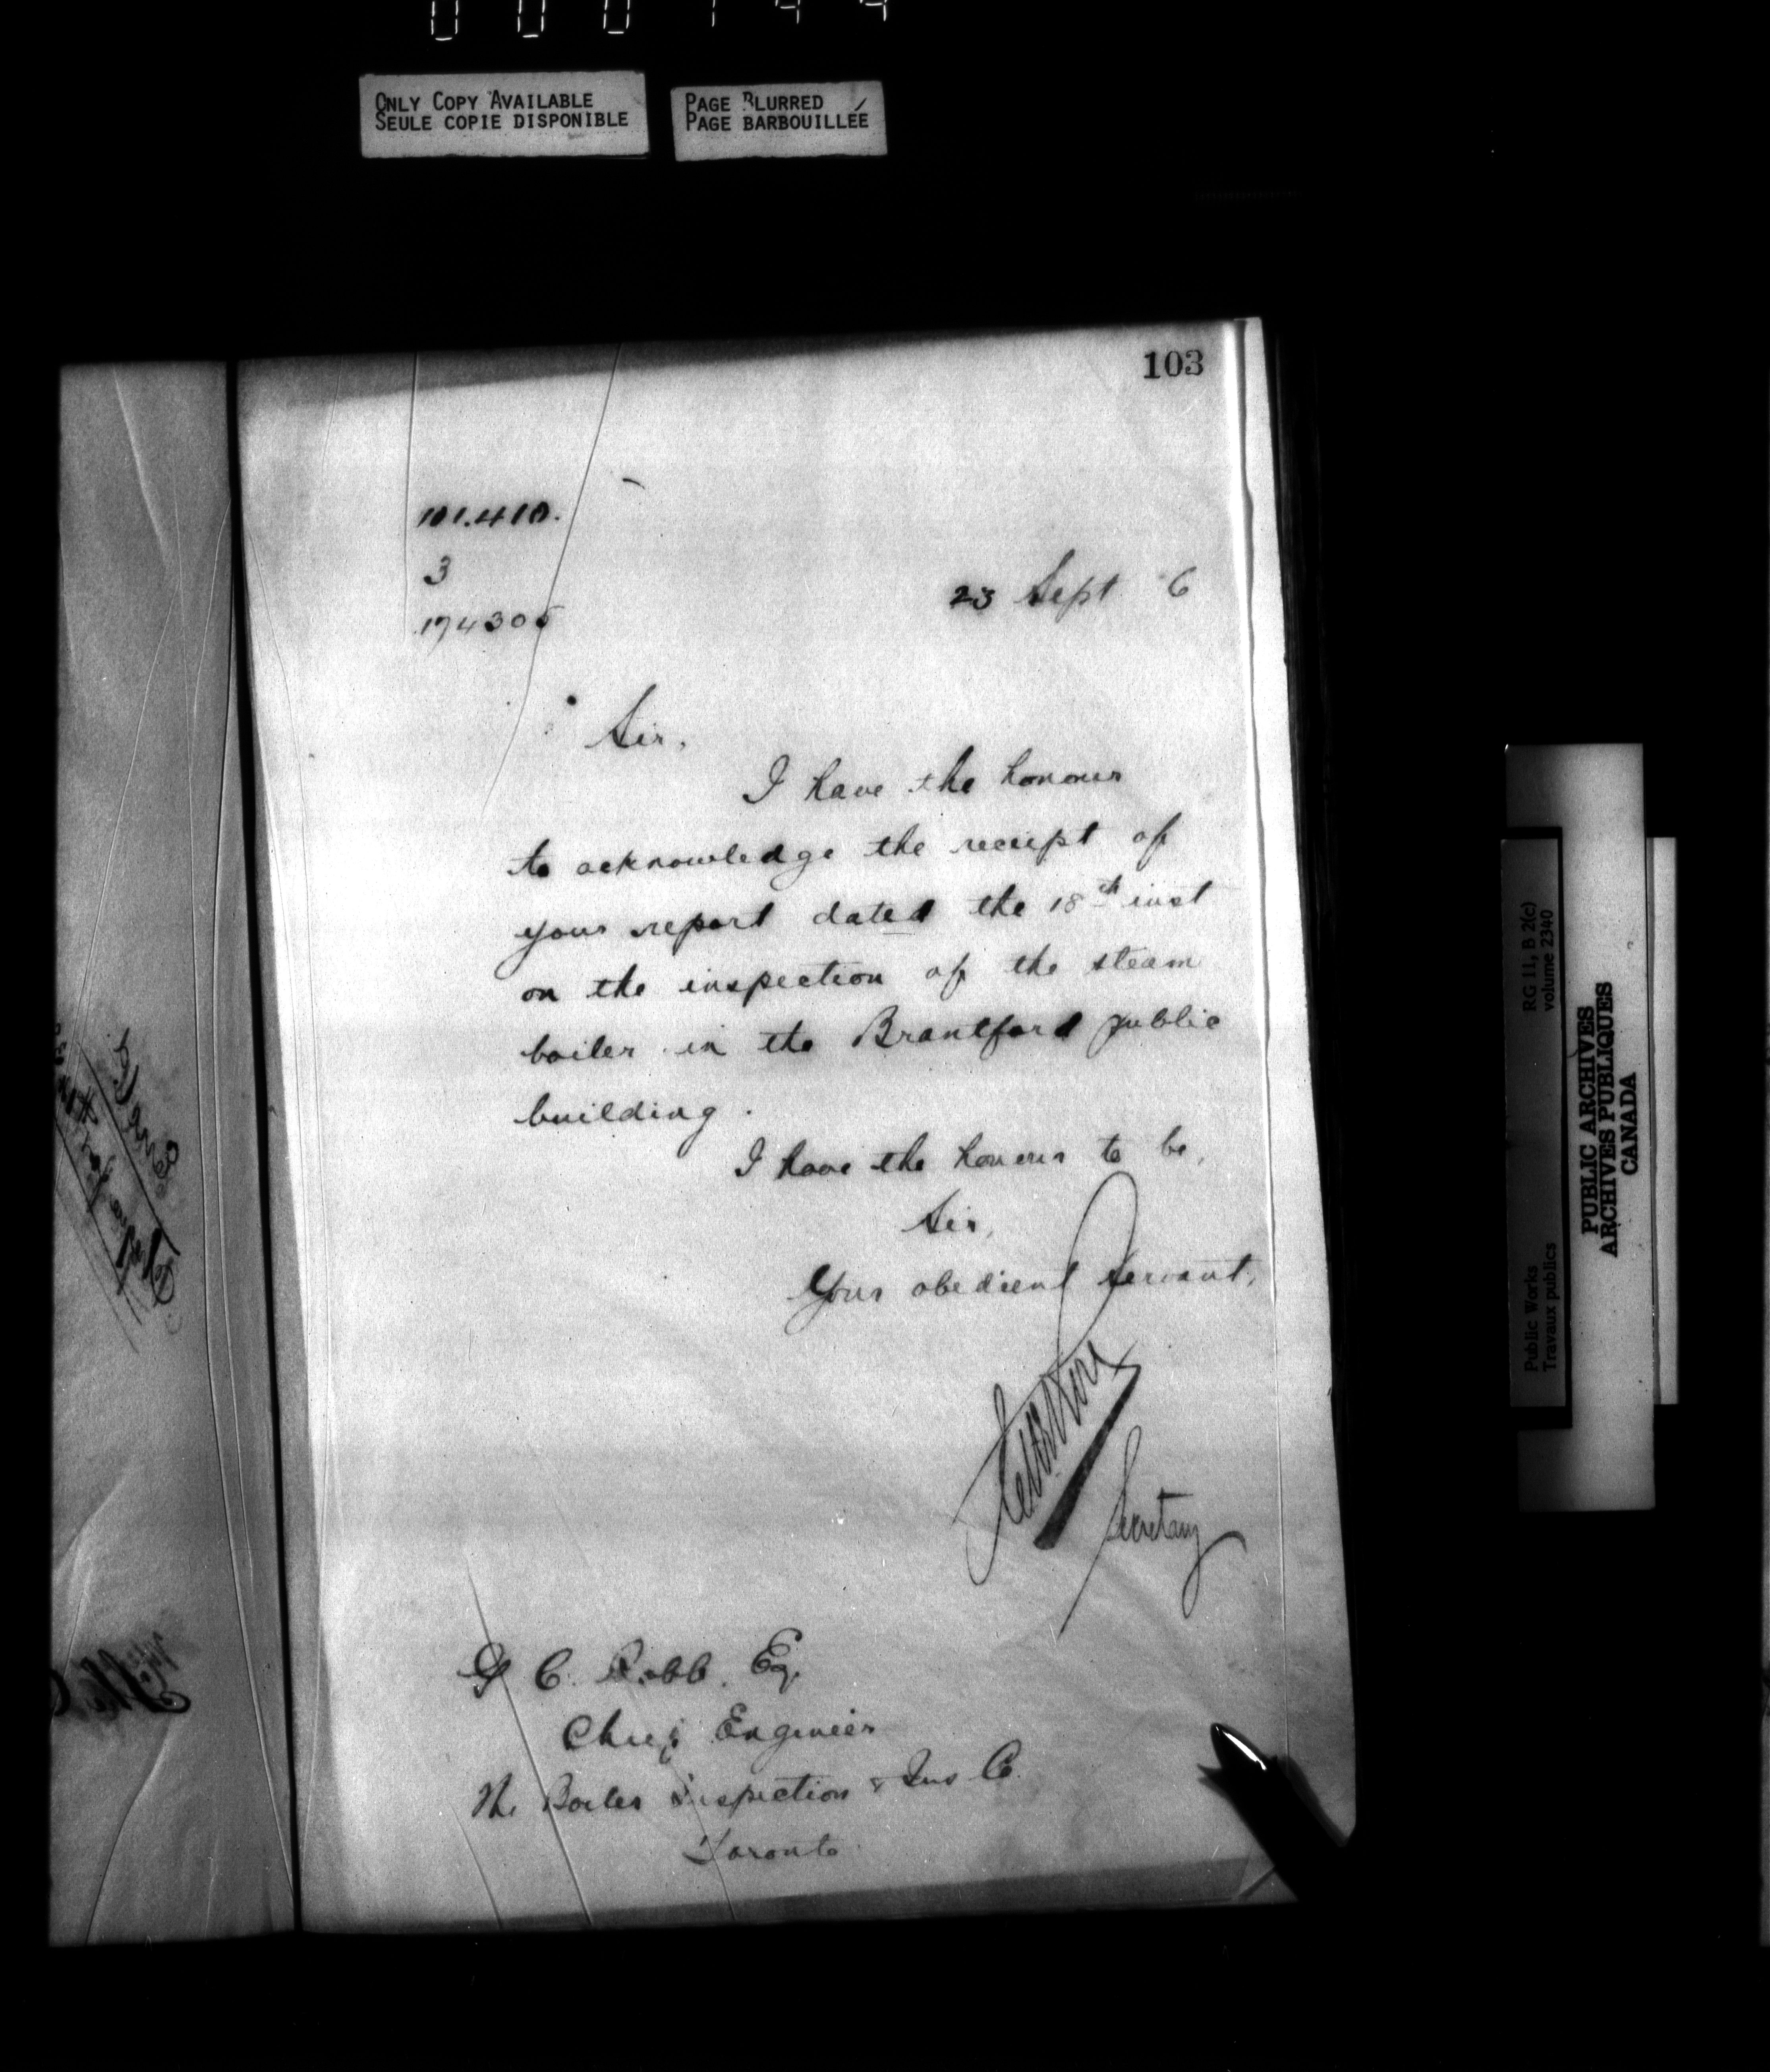 ONLY COPY AVAILABLE
SEULE COPIE DISPONIBLE
PAGE BLURRED
PAGE BARBOUILLÉE
103
101.410.
3
174305
23 Sept 6
Sir,
I have the honour
to acknowledge the receipt of
your report dated the 18th inst
on the inspection of the steam
boiler in the Brantford public
building.
I have the honour to be,
Sir,
Your obedient servant,
Secretary
G C. Robb. Eq.
Chief Engineer
The Boiler Inspection & Ins Co.
Toronto
RG 11, B 2(c)
volume 2340
Public Works
Travaux publics
PUBLIC ARCHIVES
ARCHIVES PUBLIQUES
CANADA